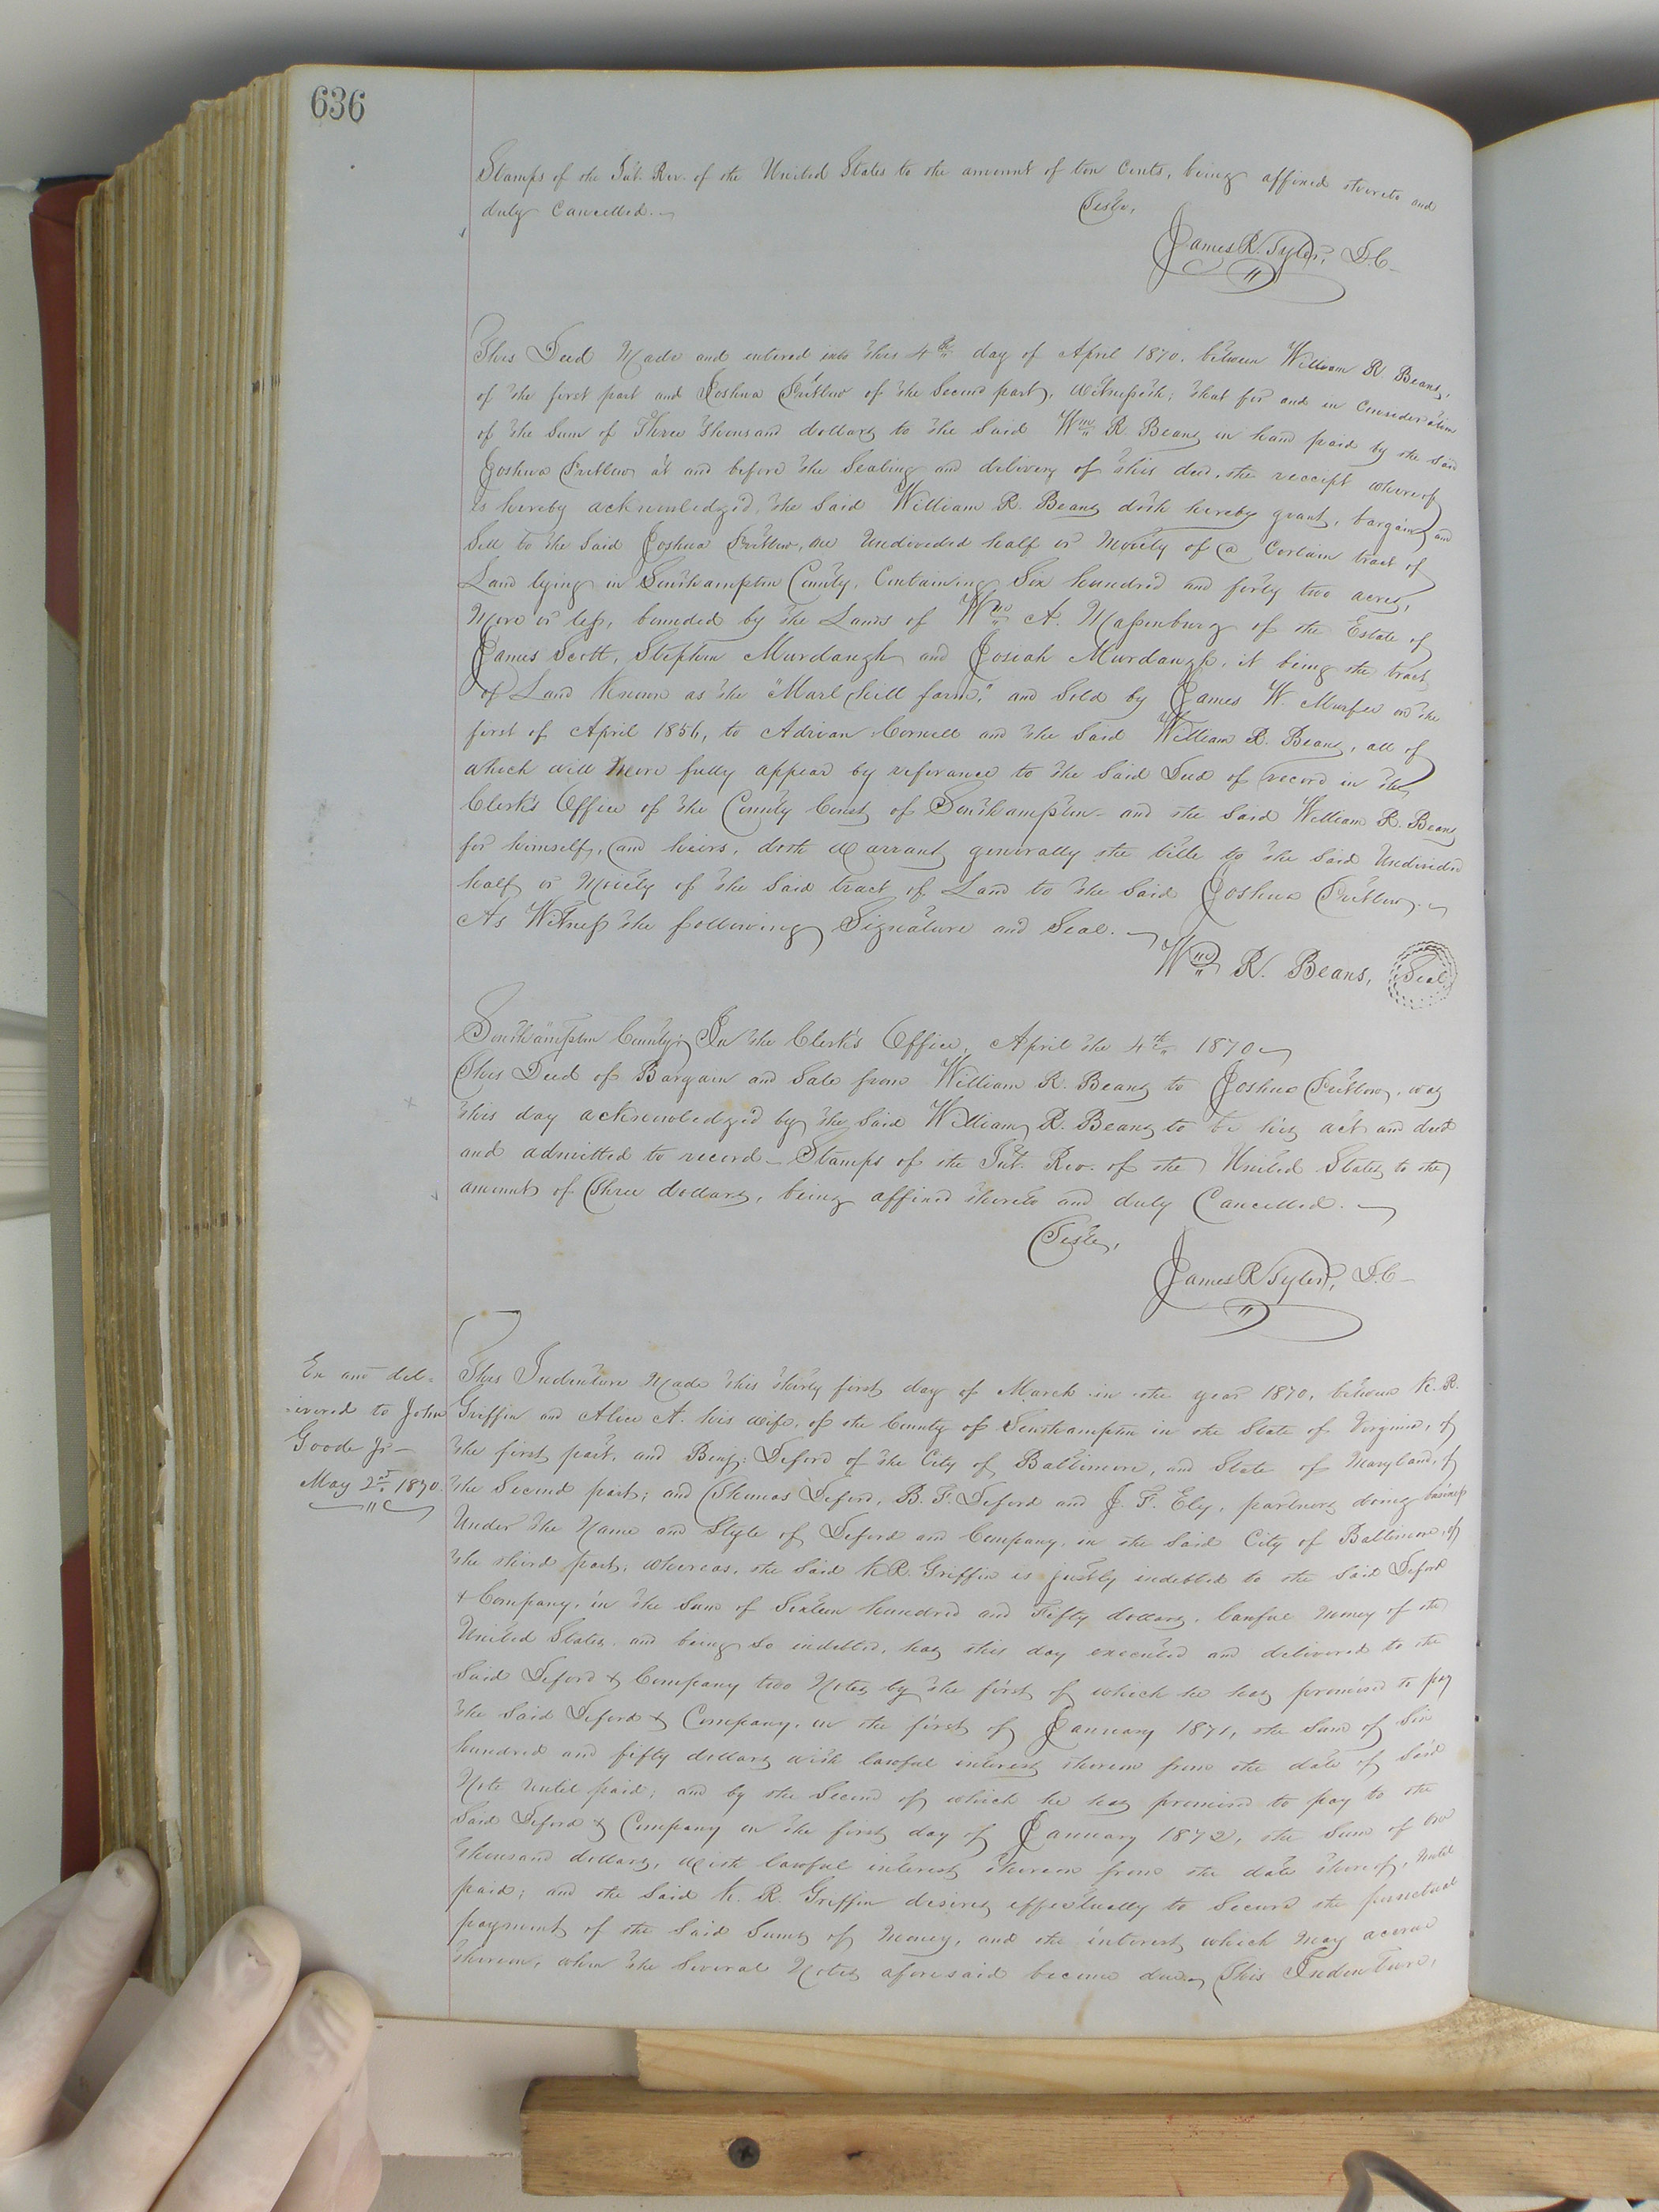 636
Stamps of the Int. Rev. of the United States to the amount of ten Cents, being affixed thereto and
duly Cancelled.
Teste,
James R. Tyler, D.C.
This Deed Made and entered into this 4th day of April 1870, between William R. Beans,
of the first part and Joshua Pretlow of the Second part, Witnesseth; that for and in Consideration
of the Sum of Three thousand dollars to the Said Wm R. Beans in hand paid by the Said
Joshua Pretlow at and before the Sealing and delivery of this deed, the receipt whereof
is hereby acknowledged, the Said William R. Beans doth hereby grant, bargain and
Sell to the Said Joshua Pretlow, one Undivided half or Moiety of a Certain tract of
Land lying in Southampton County, Containing Six hundred and forty two acres,
More or less, bounded by the Lands of Wm A. Massenburg of the Estate of
James Scott, Stephen Murdaugh and Josiah Murdaugh, it being the tract
of Land Known as the "Marl hill farm," and Sold by James W. Murfee on the
first of April 1856, to Adrian Cornell and the Said William R. Beans, all of
which will More fully appear by referance to the Said Deed of record in the
Clerk's Office of the County Court of Southampton - and the Said William R. Beans
for himself, and heirs, doth Warrant generally the title to the Said Undivided
half or Moiety of the Said tract of Land to the Said Joshua Pretlow.
As Witness the following Signature and Seal.
Wm R. Beans, Seal
Southampton County; In the Clerk's Office, April the 4th 1870
This Deed of Bargain and Sale from William R. Beans to Joshua Pretlow, was
this day acknowledged by the Said William R. Beans to be his act and deed
and admitted to record - Stamps of the Int. Rev. of the United States to the
amount of Three dollars, being affixed thereto and duly Cancelled.
Teste,
James R Tyler, D.C.
Ex and del=
ivered to John
Goode Jr -
May 2nd 1870.
This Indenture Made this thirty first day of March in the year 1870, between K. R.
Griffin and Alice A. his wife, of the County of Southampton in the State of Virginia, of
the first part, and Benj: Deford of the City of Baltimore, and State of Maryland, of
the Second part; and Thomas Deford, B. F. Deford and J. F. Ely, partners doing business
Under the Name and Style of Deford and Company, in the Said City of Baltimore, of
the third part, whereas, the Said K R. Griffin is justly indebted to the Said Deford
& Company, in the Sum of Sixteen hundred and Fifty dollars, lawful money of the
United States, and being So indebted, has this day executed and delivered to the
Said Deford & Company two Notes by the first of which he has promised to pay
the Said Deford & Company, on the first of January 1871, the Sum of Six
hundred and fifty dollars with lawful interest thereon from the date of Said
Note until paid; and by the Second of which he has promised to pay to the
Said Deford & Company on the first day of January 1872, the Sum of one
thousand dollars, with lawful interest thereon from the date thereof, until
paid; and the Said K. R. Griffin desires effectually to Secure the punctual
payment of the Said Sums of Money, and the interest which May accrue
thereon, when the Several Notes aforesaid become due, This Indenture,